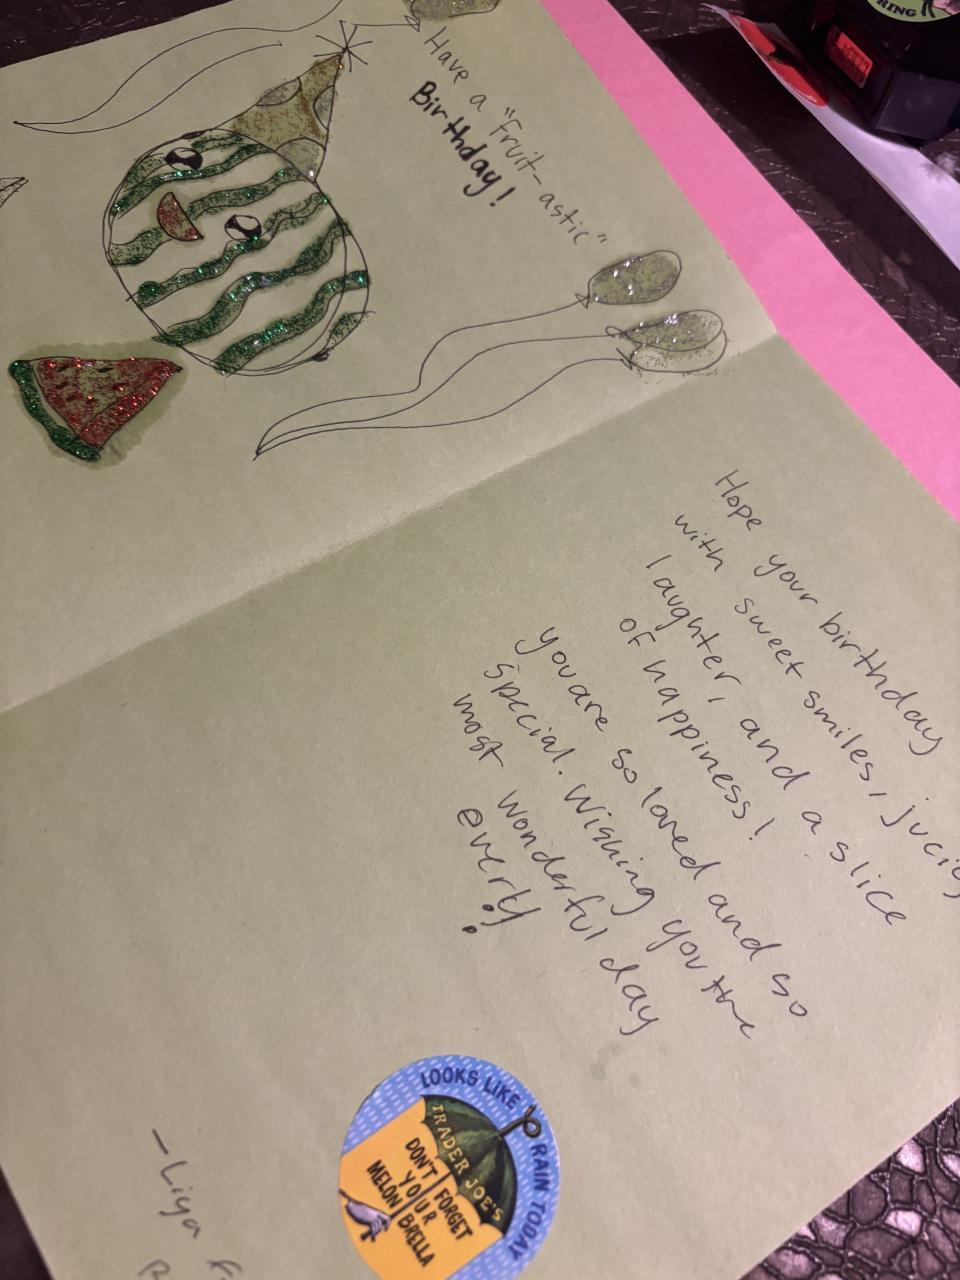 Have a "fruit-astic"
Birthday!
Hope your birthday
with sweet smiles, jucie
laughter, and a slice
of happiness!
you are so loved and so
special. Wishing you the
most wonderful day
every!
LOOKS LIKE RAIN TODAY
TRADER JOE'S
DON'T FORGET
YOUR
MELON BRELLA
- Liya
RING